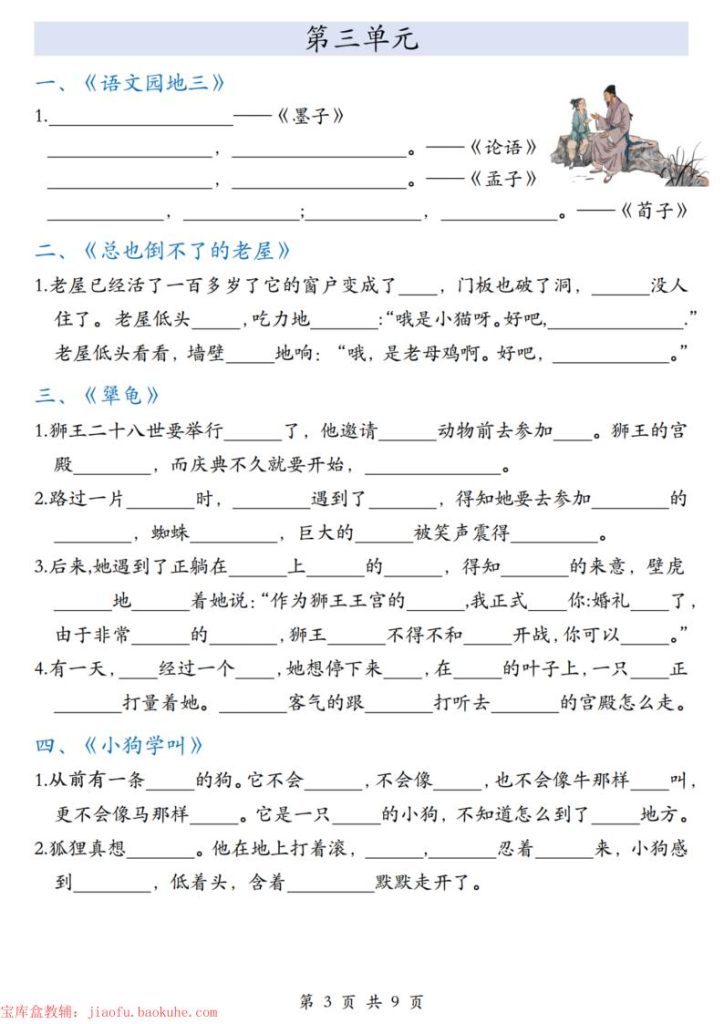 第三单元
一、《语文园地三》
1.____________________——《墨子》
__________________，___________________。——《论语》
__________________，___________________。——《孟子》
_____________，____________;_____________，____________。——《荀子》
二、《总也倒不了的老屋》
1.老屋已经活了一百多岁了它的窗户变成了____，门板也破了洞，______没人
住了。老屋低头_____,吃力地_______:“哦是小猫呀。好吧,_______________.”
老屋低头看看，墙壁_____地响：“哦，是老母鸡啊。好吧，_____________。”
三、《犟龟》
1.狮王二十八世要举行______了，他邀请______动物前去参加____。狮王的宫
殿________，而庆典不久就要开始，_______________。
2.路过一片_______时，________遇到了_______，得知她要去参加________的
________，蜘蛛_________，巨大的______被笑声震得_________。
3.后来,她遇到了正躺在______上______的______，得知_______的来意，壁虎
______地______着她说:“作为狮王王宫的______,我正式____你:婚礼____了，
由于非常_____的_______,狮王______不得不和_____开战,你可以_____。”
4.有一天,____经过一个____,她想停下来____,在____的叶子上,一只____正
_______打量着她。_______客气的跟_______打听去_______的宫殿怎么走。
四、《小狗学叫》
1.从前有一条_____的狗。它不会______,不会像_____,也不会像牛那样____叫,
更不会像马那样_____。它是一只_____的小狗，不知道怎么到了_____地方。
2.狐狸真想_______。他在地上打着滚，______,_______忍着______来，小狗感
到________，低着头，含着_________默默走开了。
第 3 页 共 9 页
宝库盒教辅：jiaofu.baokuhe.com